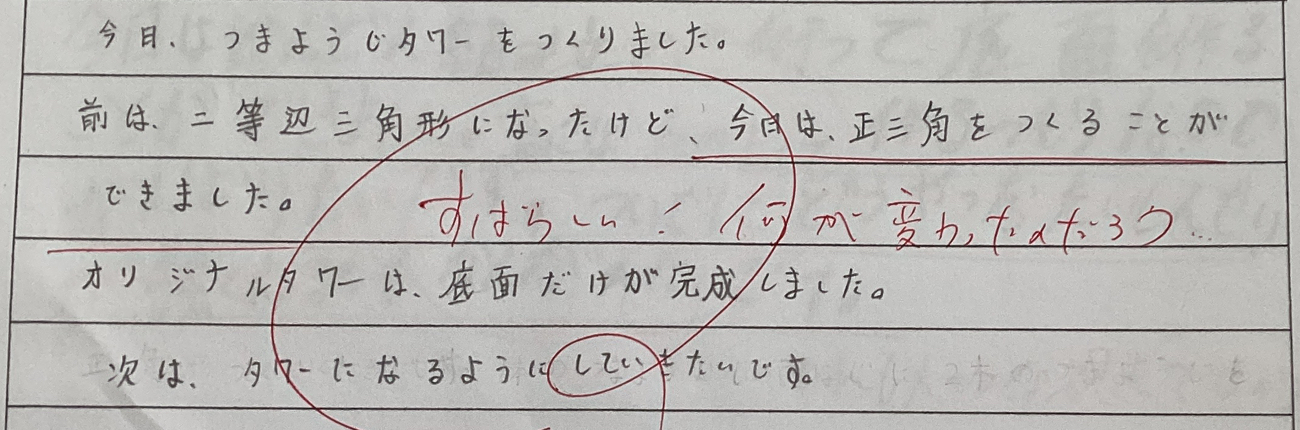 今日、つまようじタワーをつくりました。
前は、二等辺三角形になったけど、今日は、正三角をつくることが
できました。
すばらしい！何が変わったのだろう…
オリジナルタワーは、底面だけが完成しました。
次は、タワーになるようにしていきたいです。